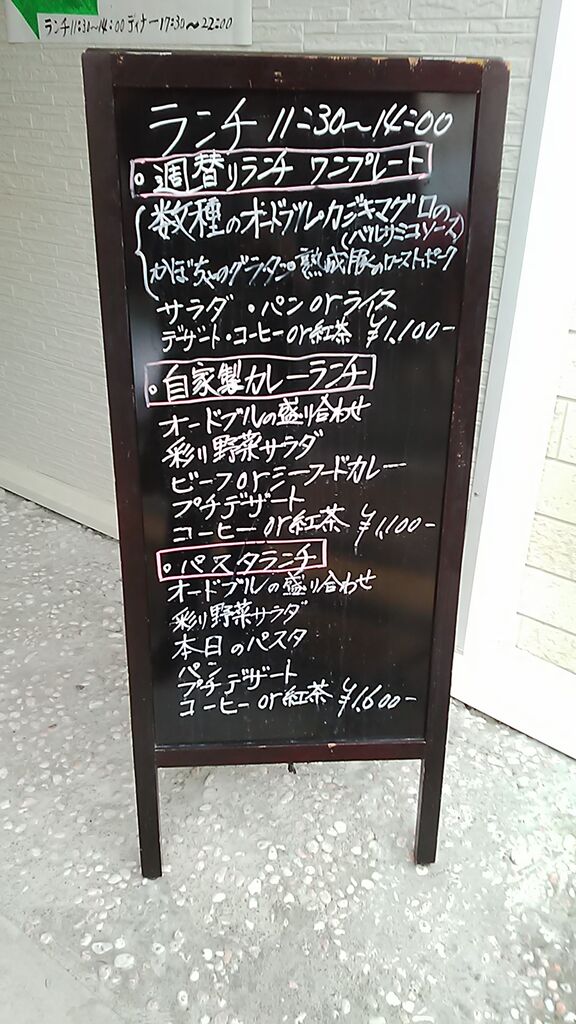 ランチ11:30〜14:00 ディナー17:30〜22:00
ランチ 11:30〜14:00
。週替りランチ ワンプレート
数種のオードブル・カジキマグロの
(バルサミコソース)
かぼちゃのグラタン・熟成豚のローストポーク
サラダ・パンorライス
デザート・コーヒーor紅茶 ¥1,100-
。自家製カレーランチ
オードブルの盛り合わせ
彩り野菜サラダ
ビーフorシーフードカレー
プチデザート
コーヒーor紅茶 ¥1,100-
。パスタランチ
オードブルの盛り合わせ
彩り野菜サラダ
本日のパスタ
パン
プチデザート
コーヒーor紅茶 ¥1,600-